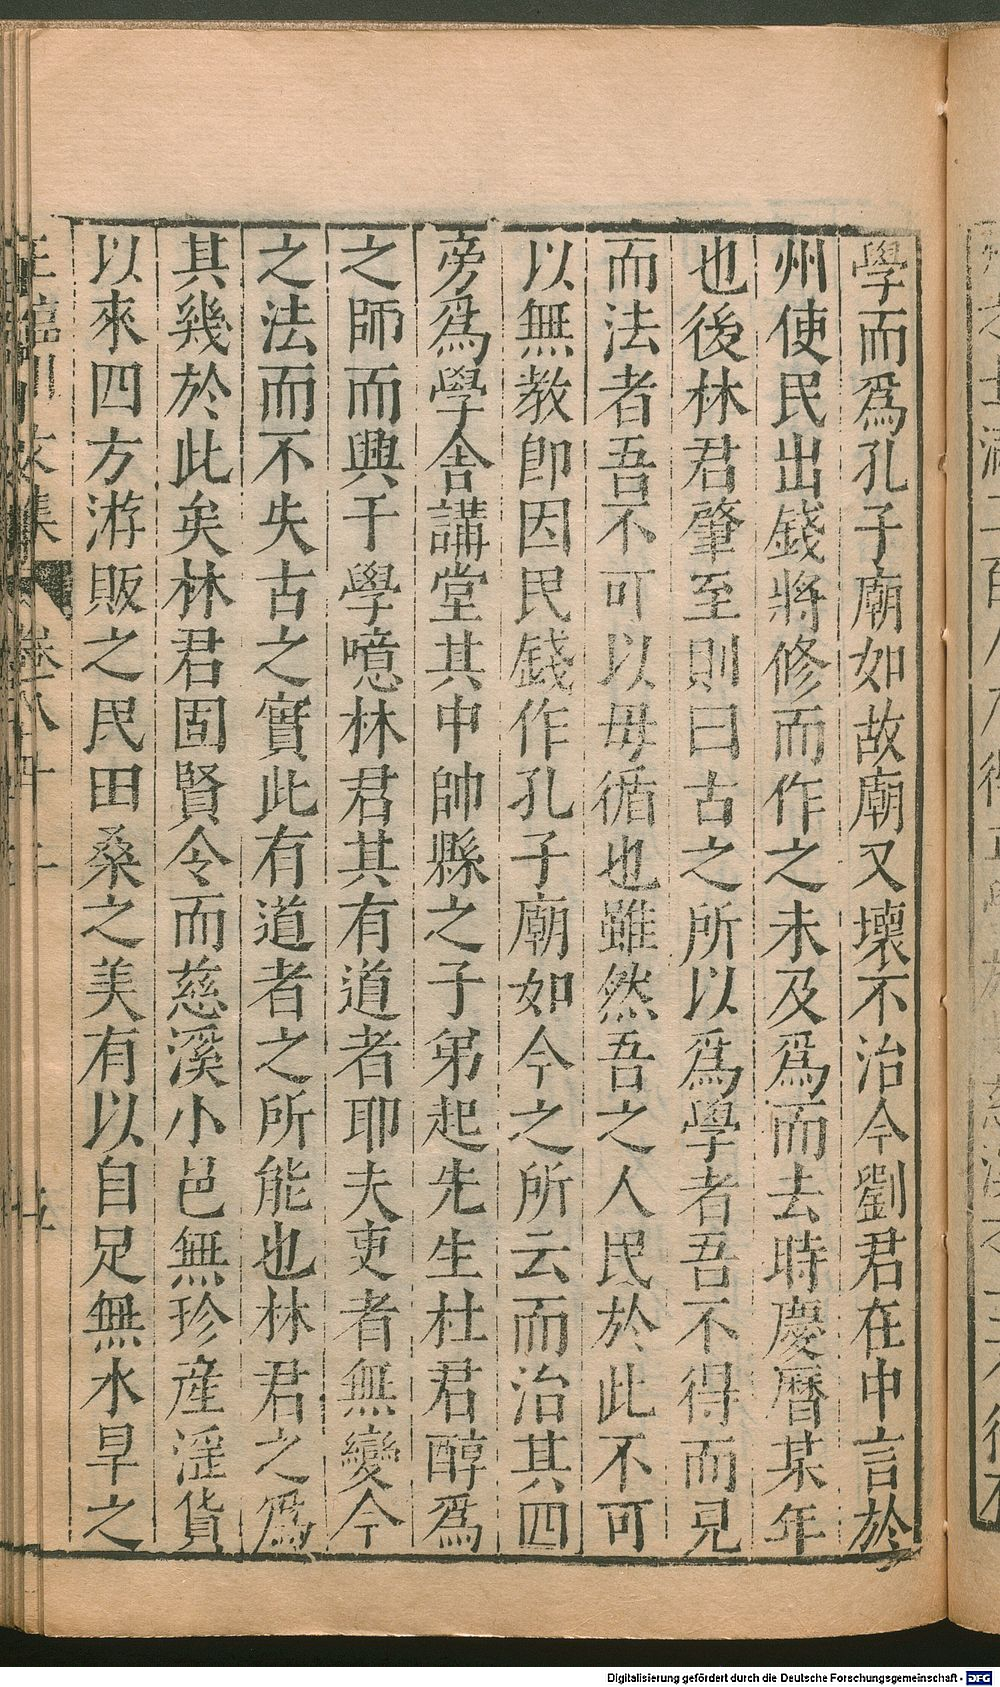 學而爲孔子廟如故廟又壞不治今劉君在中言於
州使民出錢將修而作之未及爲而去時慶曆某年
也後林君肇至則曰古之所以爲學者吾不得而見
而法者吾不可以毋循也雖然吾之人民於此不可
以無教卽因民錢作孔子廟如今之所云而治其四
旁爲學舍講堂其中帥縣之子弟起先生杜君醇爲
之師而興于學噫林君其有道者耶夫吏者無變今
之法而不失古之實此有道者之所能也林君之爲
其幾於此矣林君固賢令而慈溪小邑無珍產淫貨
以來四方游販之民田桑之美有以自足無水旱之
王臨川文集 卷八十二 五
Digitalisierung gefördert durch die Deutsche Forschungsgemeinschaft - DFG